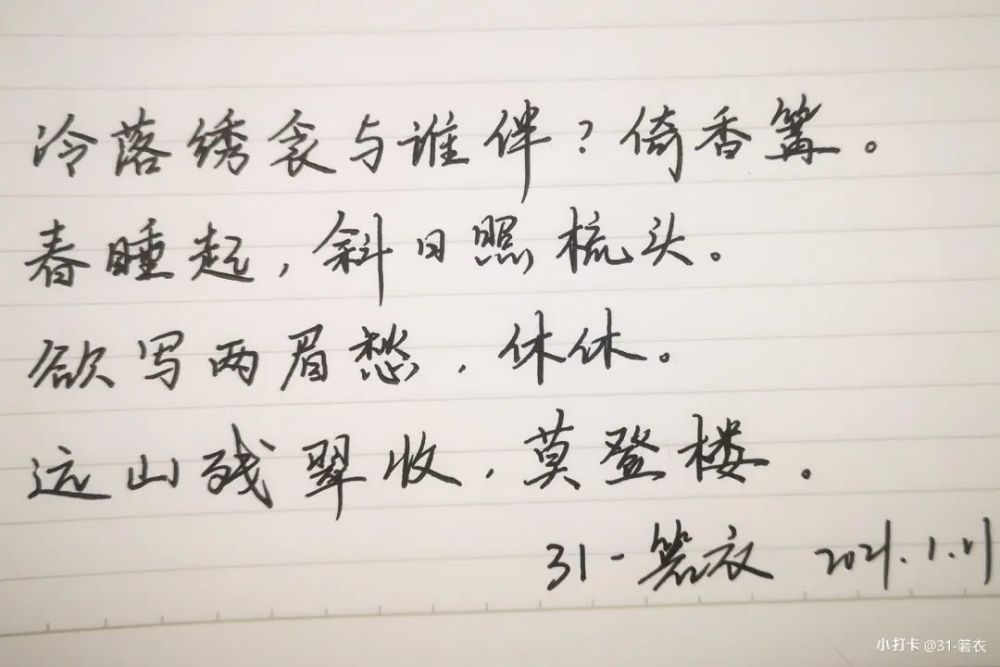 冷落绣衾与谁伴？倚香篝。
春睡起，斜日照梳头。
欲写两眉愁，休休。
远山残翠收，莫登楼。
31-箬衣 2021.1.21
小打卡 @31-箬衣